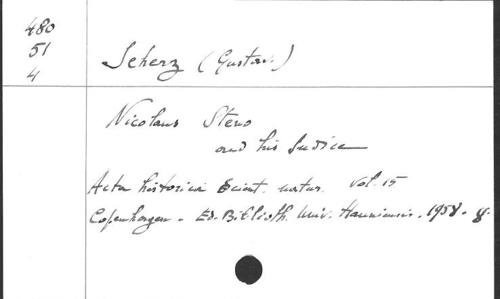 480
51
4
Scherz (Gustav.)
Nicolaus Steno
and his Indice
Acta historica Scient. natur. Vol. 15
Copenhagen - Ed. Biblioth. Univ. Hauniensis. 1958. 8.